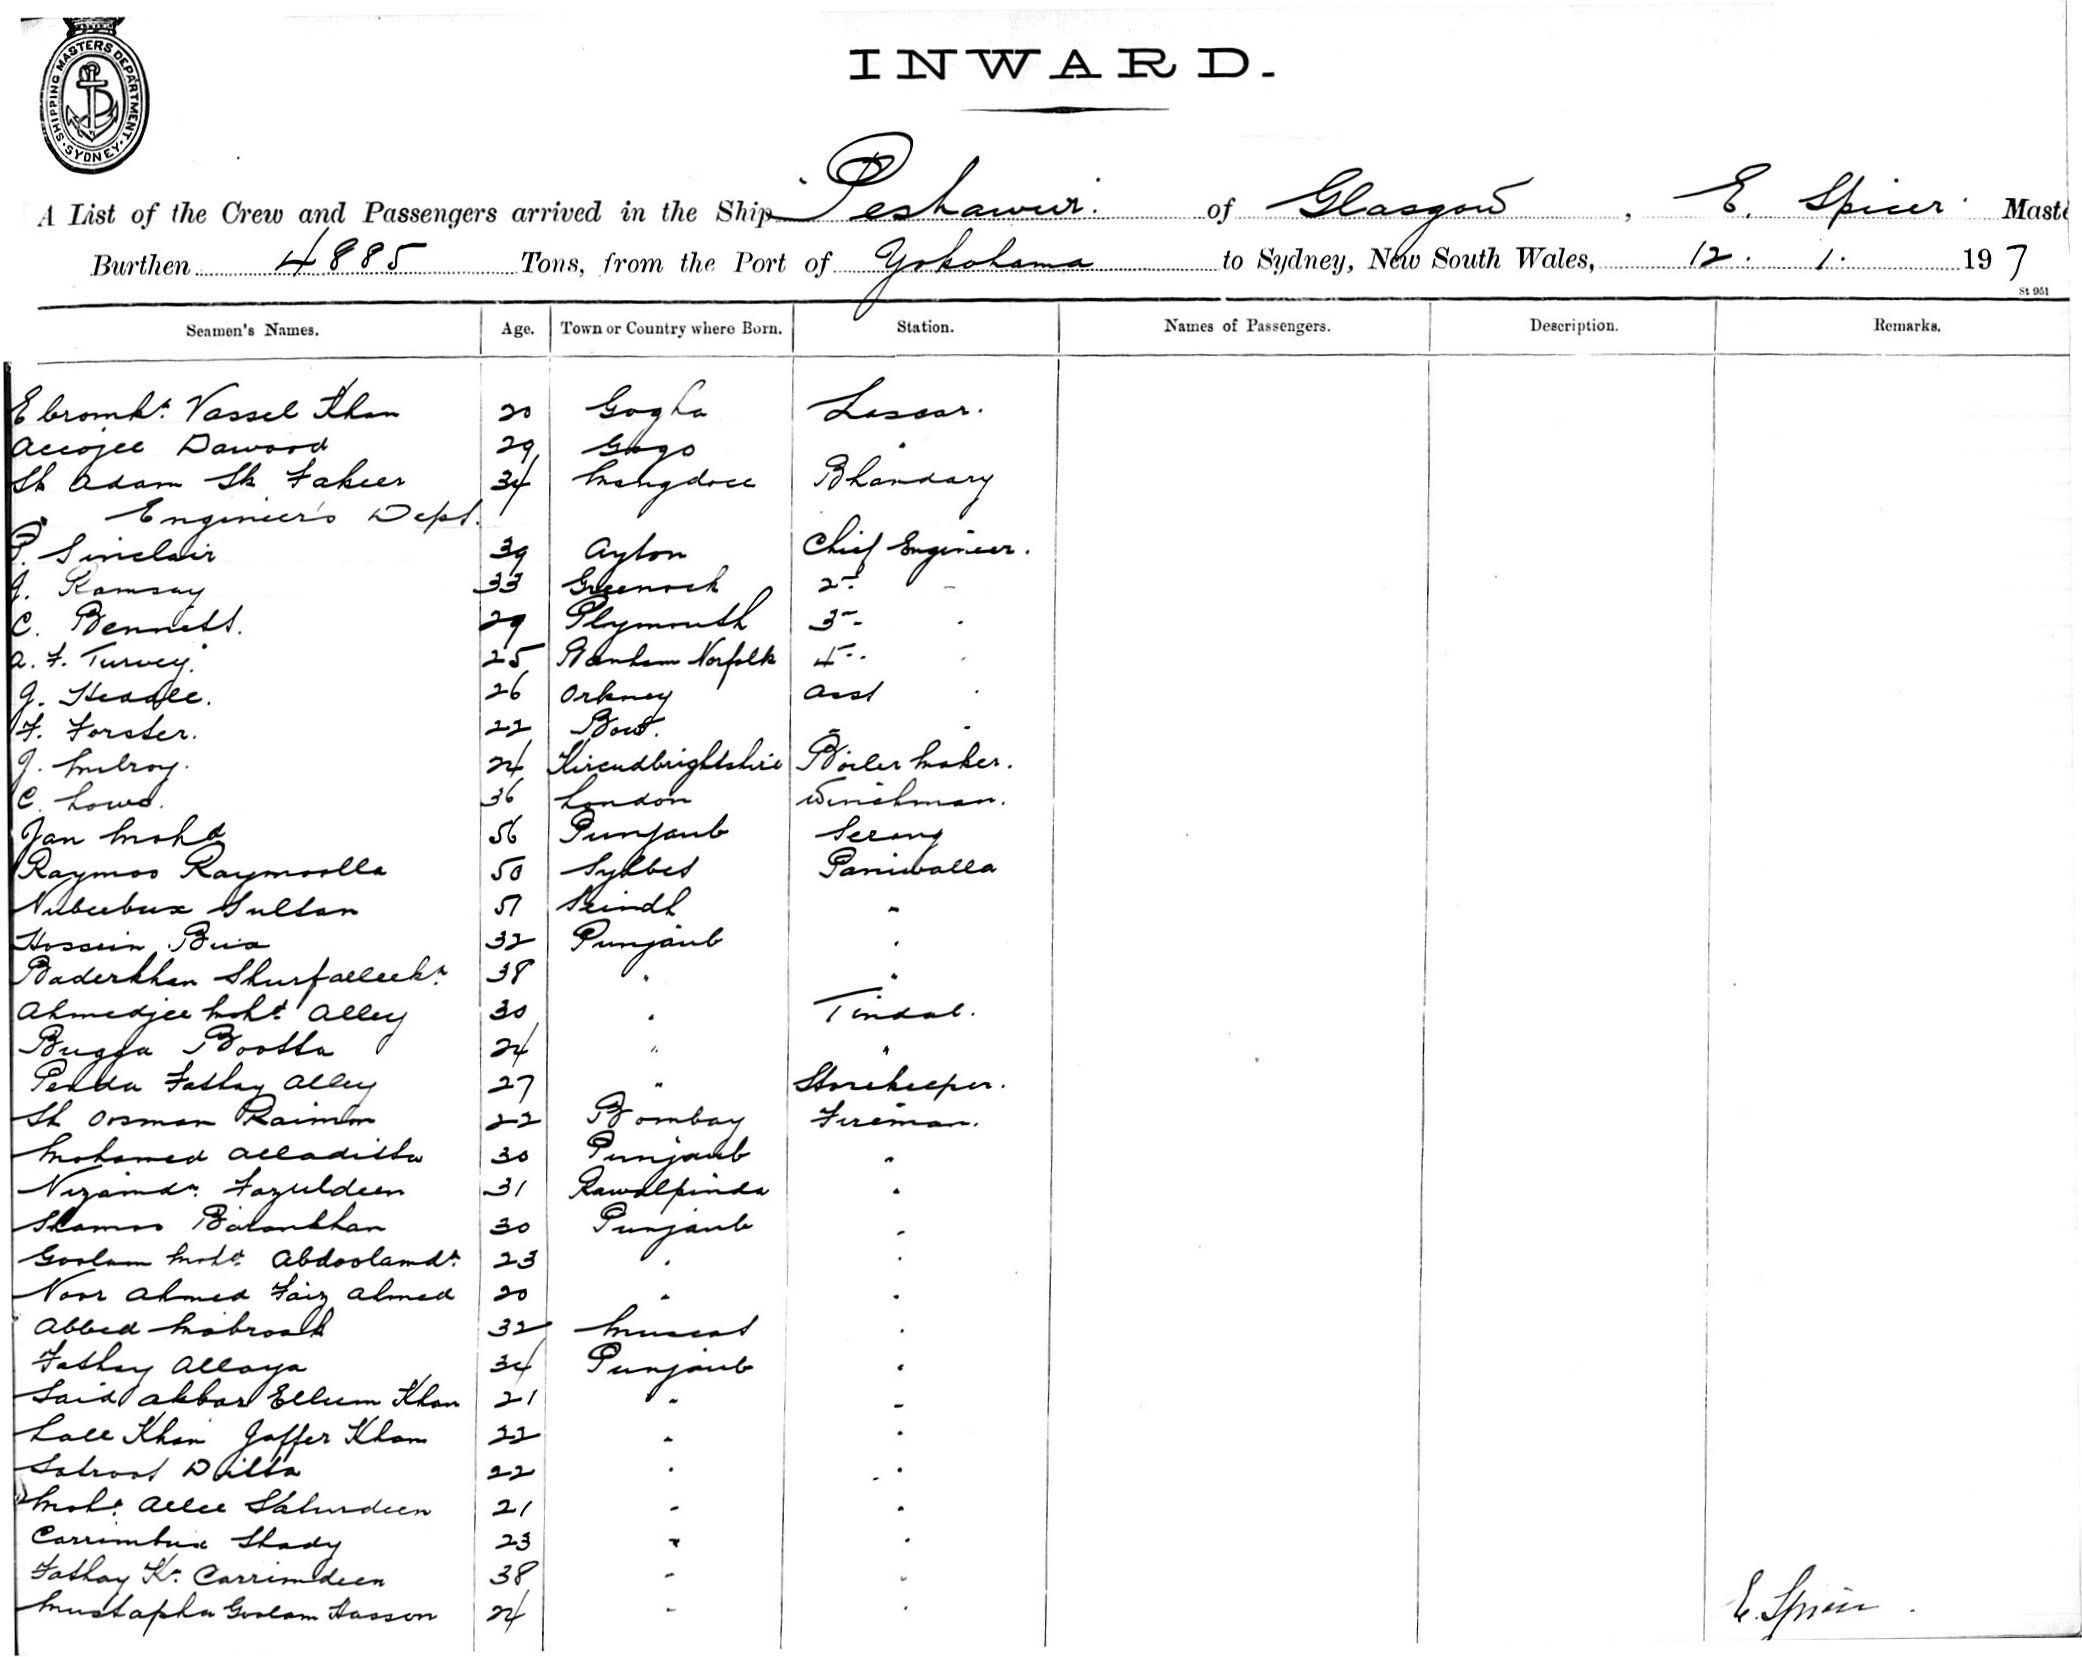 SHIPPING MASTERS DEPARTMENT. SYDNEY.
INWARD.
A List of the Crew and Passengers arrived in the Ship Peshawur. of Glasgow, E. Spicer Maste
Burthen 4885 Tons, from the Port of Yokohama to Sydney, New South Wales, 12. 1. 197
St 951
Seamen's Names. Age. Town or Country where Born. Station. Names of Passengers. Description. Remarks.
Ebromkn. Vassel Khan 20 Gogha Lascar.
Accojee Dawood 29 Gogo "
Sk Adam Sk Fakeer 34 Bhandary
Engineer's Dept.
P. Sinclair 39 Ayton Chief Engineer.
J. Ramsay 33 Greenock 2nd "
C. Bennett. 29 Plymouth 3rd "
A. F. Turvey. 25 Norfolk 4th "
J. Headle. 26 Orkney Asst "
F. Forster. 22 Bow. " "
J. Milroy. 24 Kircudbrightshire Boiler Maker.
C. Lowe. 36 London Winchman.
Jan Mohd 56 Punjaub Serang
Raymoo Raymoolla 50 Sylhet Paniwalla
Nubeebux Sultan 51 Scindh "
Hossein Bux 32 Punjaub "
Baderkhan Shurfalleekn. 38 " "
Ahmedjee Mohd. Alley 30 " Tindal.
Bugga Bootta 24 " "
Penda Fathay Alley 27 " Storekeeper.
Sk Oosman Raimon 22 Bombay Fireman.
Mohamed Alladitta 30 Punjaub "
Nizamdn. Fazuldeen 31 Rawalpinda "
Shamoo Barankhan 30 Punjaub "
Goolam Mohd. Abdoolamdn. 23 " "
Noor Ahmed Faiz Ahmed 20 " "
Abbed Mabrook 32 Muscat "
Fathay Allaya 34 Punjaub "
Said Akbar Ellum Khan 21 " "
Lall Khan Jaffer Khan 22 " "
Ditta 22 " "
Mohd. Allee Shahurdeen 21 " "
Carrimbux Shady 23 " "
Fathay Kn. Carrimdeen 38 " "
Mustapha Goolam Hasson 24 " "
E. Spicer